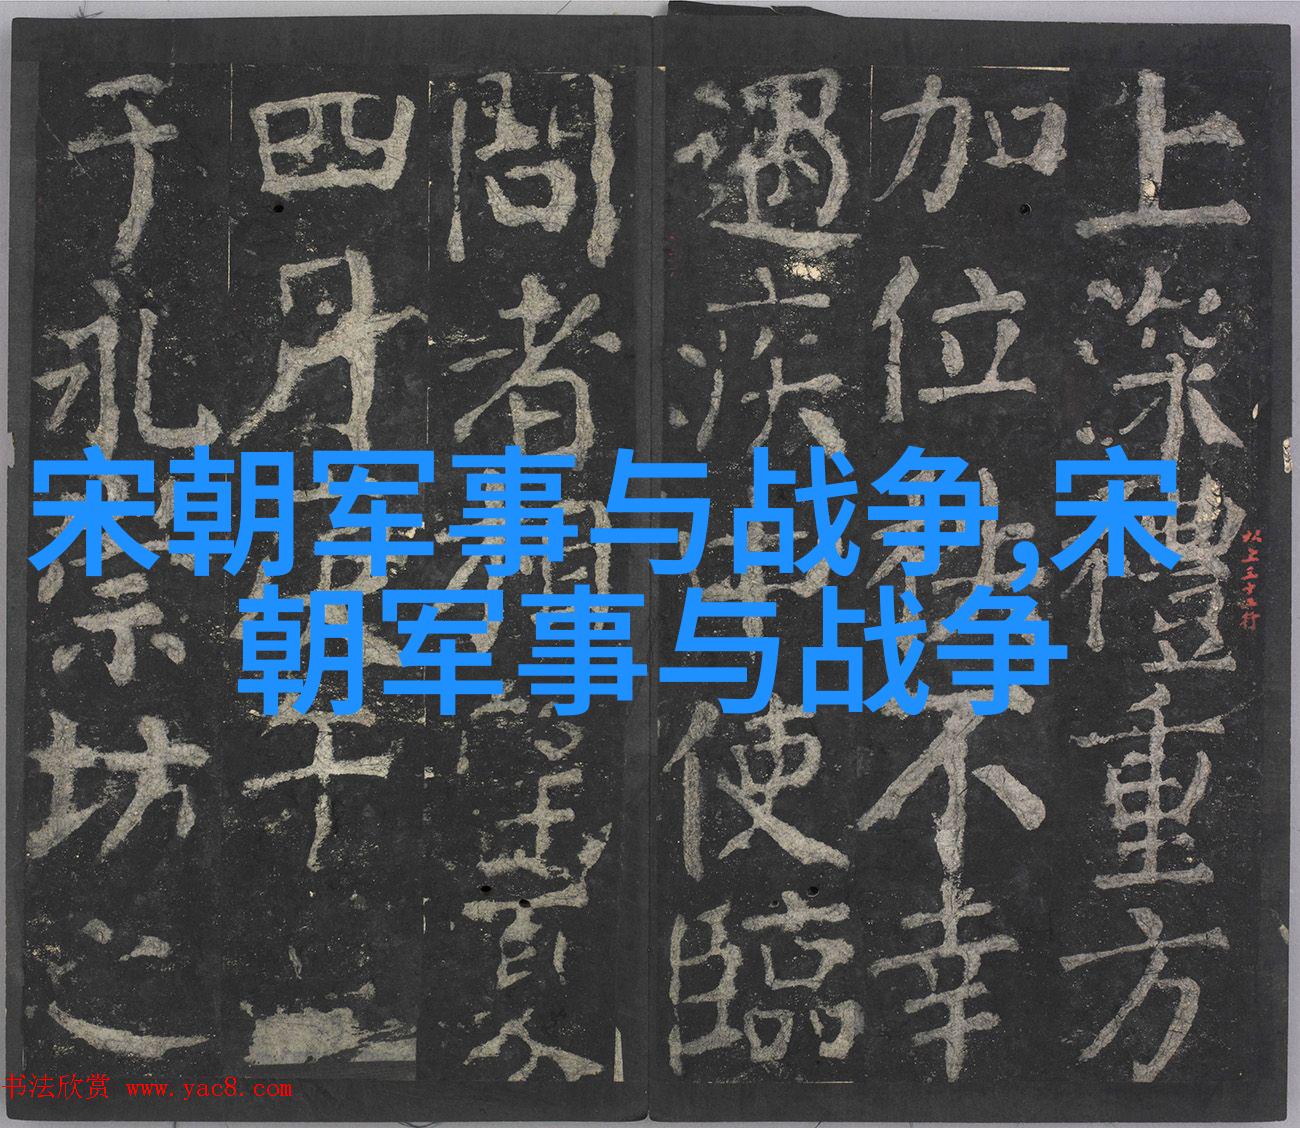 上深禮重方
加位秩不幸
遇疾中使臨
問者相望夏
四月景午
于永崇坊之
宋朝军事与战争,宋
朝军事与战争
书法欣赏 www.yac8.com